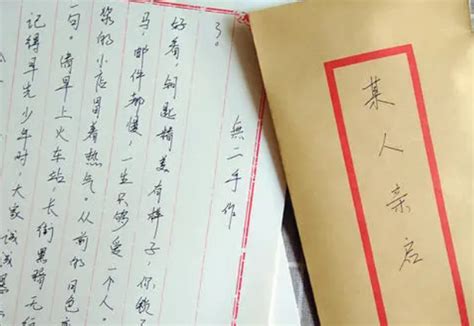 记得早先少年时,大家诚诚恳
句。清早上火车站,长街黑暗无行
浆的小店冒着热气。从前的日色
马,邮件都慢,一生只够爱一个人。
好看,钥匙精美有样子,你锁
了。
無二手作
某人亲启